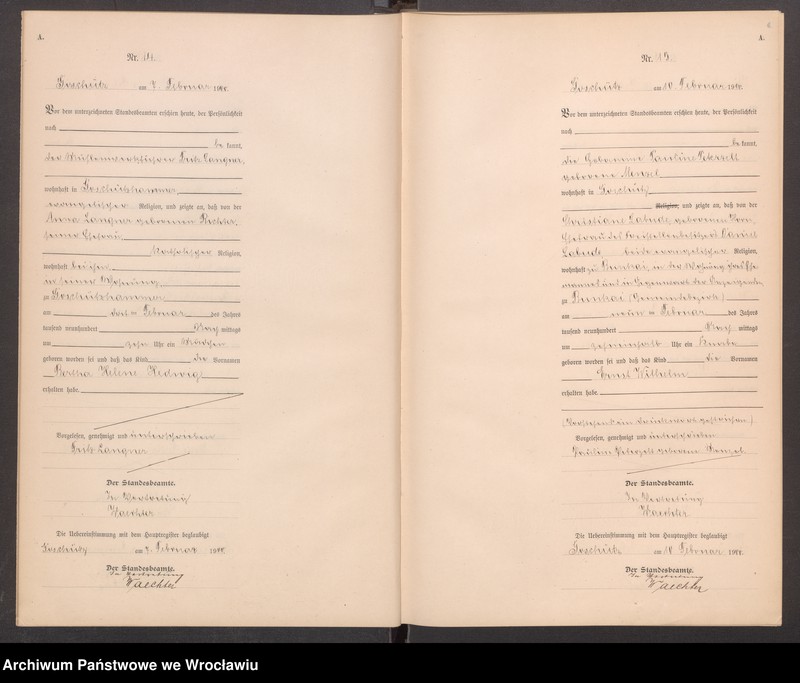 A.
Nr. 14.
Goschütz am 7. Februar 1900.
Vor dem unterzeichneten Standesbeamten erschien heute, der Persönlichkeit
nach
be kannt,
der Fritz Langner,
wohnhaft in Goschützhammer
evangelischer Religion, und zeigte an, daß von der
Anna Langner geborenen Richter,
seiner Ehefrau
katholischer Religion,
wohnhaft bei ihm
in seiner Wohnung
zu Goschützhammer
am Februar des Jahres
tausend neunhundert mittags
um zehn Uhr ein Mädchen
geboren worden sei und daß das Kind die Vornamen
Bertha Helene Hedwig
erhalten habe.
Vorgelesen, genehmigt und unterschrieben
Fritz Langner
Der Standesbeamte.
In Vertretung
Waechter
Die Uebereinstimmung mit dem Hauptregister beglaubigt
Goschütz am 7. Februar 1900.
Der Standesbeamte.
In Vertretung
Waechter
6
A.
Nr. 15.
Goschütz am 10. Februar 1900.
Vor dem unterzeichneten Standesbeamten erschien heute, der Persönlichkeit
nach
be kannt,
die Hebamme Pauline
geborene Menzel
wohnhaft in Goschütz
Religion, und zeigte an, daß von der
Labude, geborenen
Ehefrau des Daniel
Labude beide evangelischer Religion,
wohnhaft zu in der Wohnung ihres Ehe
mannes und in Gegenwart der Anzeigenden
zu
am Februar des Jahres
tausend neunhundert mittags
um Uhr ein Knabe
geboren worden sei und daß das Kind die Vornamen
Ernst Wilhelm
erhalten habe.
(Vorstehend ein Druckwort gestrichen.)
Vorgelesen, genehmigt und unterschrieben
Pauline geborene Menzel.
Der Standesbeamte.
In Vertretung
Waechter.
Die Uebereinstimmung mit dem Hauptregister beglaubigt
Goschütz am 10. Februar 1900.
Der Standesbeamte.
In Vertretung
Waechter
Archiwum Państwowe we Wrocławiu